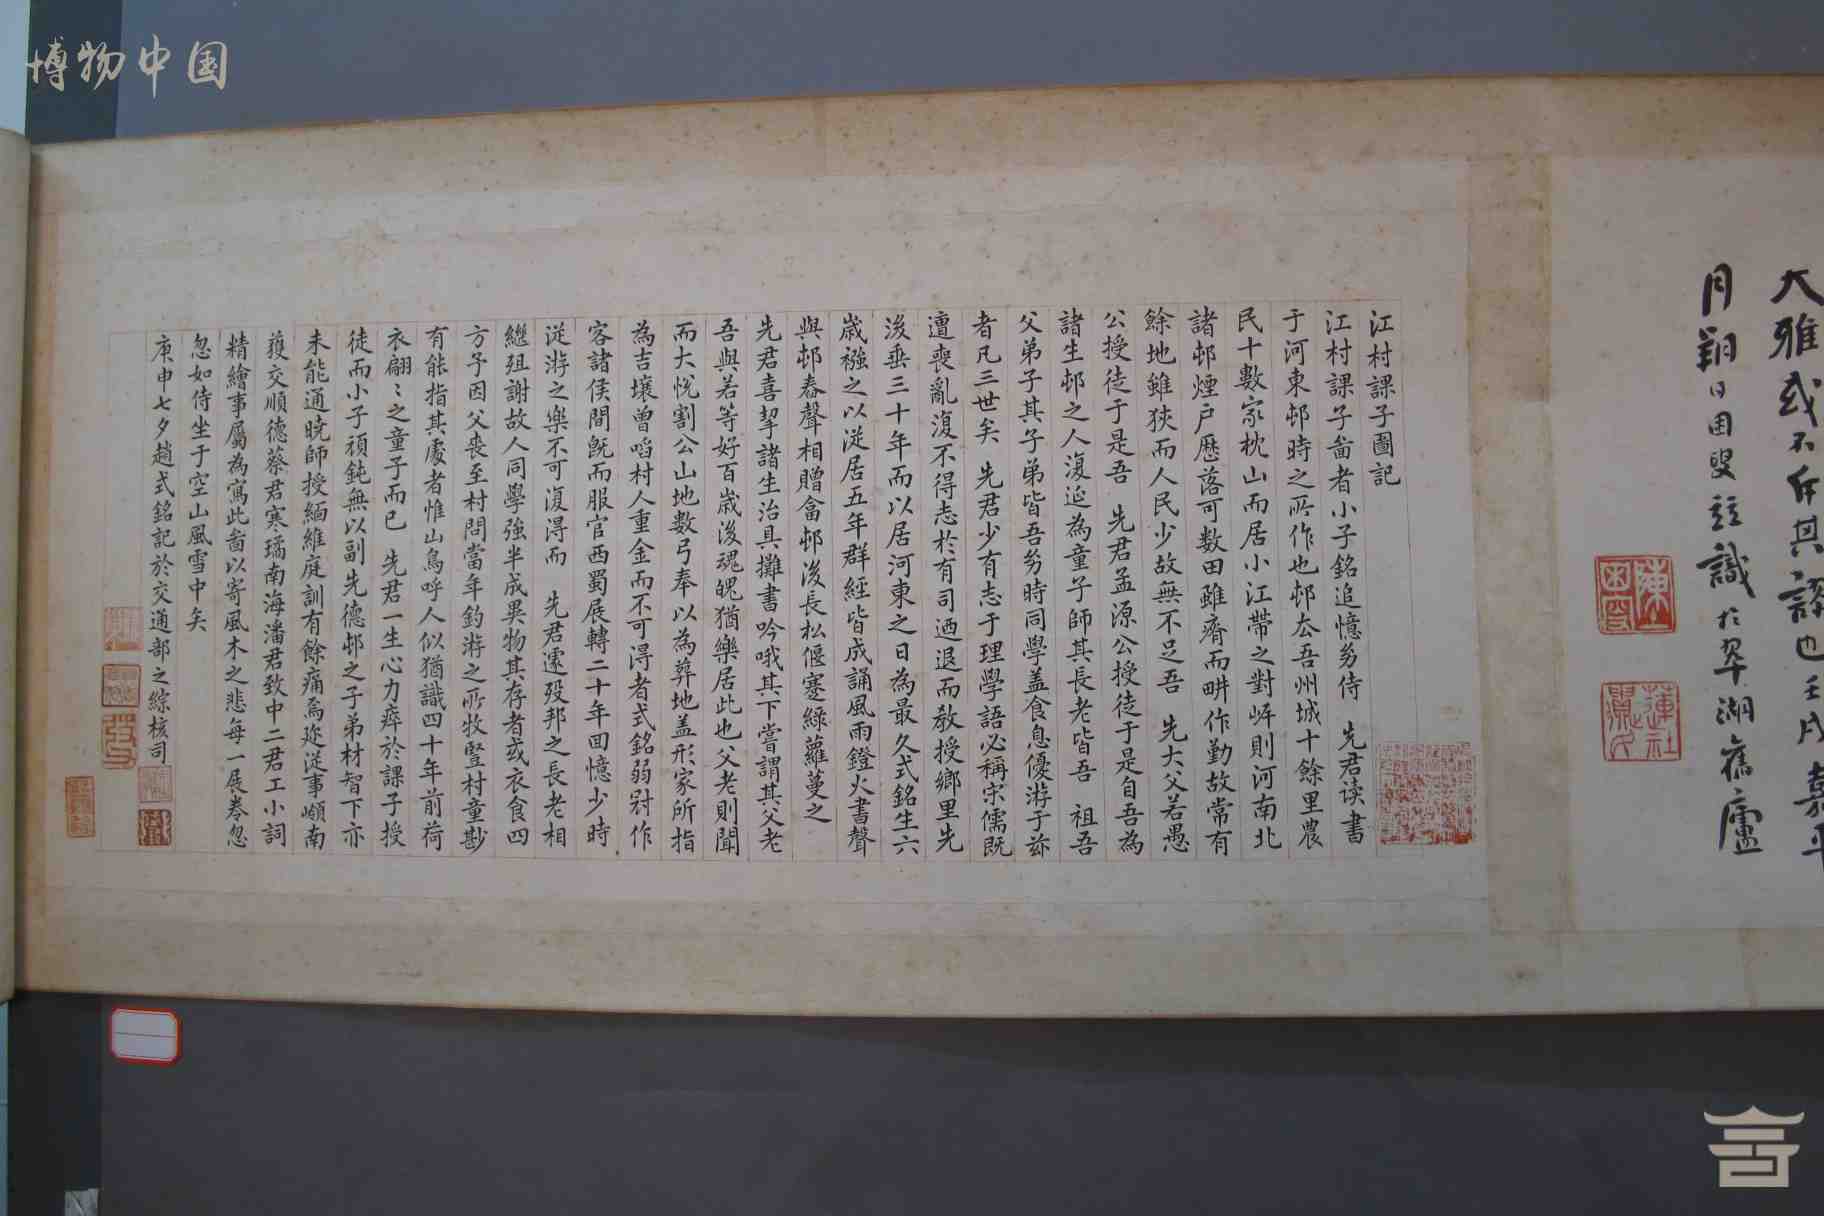 博物中国
大雅或不斥其謬也壬戌嘉平
月朔日困叟註識於翠湖舊廬
江村課子圖記
江村課子啚者小子銘追憶㓜侍 先君读書
于河東邨時之所作也邨厺吾州城十餘里農
民十數家枕山而居小江帶之對岸則河南北
諸邨煙户歷落可数田雖瘠而畊作勤故常有
餘地雖狹而人民少故無不足吾 先大父若愚
公授徒于是吾 先君孟源公授徒于是自吾為
諸生邨之人復延為童子師其長老皆吾 祖吾
父弟子其子弟皆吾㓜時同學盖食息優游于兹
者凡三世矣 先君少有志于理學語必稱宋儒既
遭喪亂復不得志於有司迺退而教授鄉里先
後垂三十年而以居河東之日為最久式銘生六
嵗襁之以從居五年群經皆成誦風雨鐙火書聲
與邨舂聲相贈畣邨後長松偃蹇綠蘿蔓之
先君喜挈諸生治具攤書吟哦其下嘗謂其父老
吾與若等好百嵗後魂魄猶樂居此也父老則聞
而大悅割公山地數弓奉以為葬地盖形家所指
為吉壤曾啗村人重金而不可得者式銘弱冠作
客諸侯間旣而服官西蜀展轉二十年回憶少時
從游之樂不可復得而 先君遽歿邦之長老相
繼殂謝故人同學強半成異物其存者或衣食四
方予因父喪至村問當年釣游之所牧豎村童尠
有能指其處者惟山鳥呼人似猶識四十年前荷
衣翩〻之童子而已 先君一生心力瘁於課子授
徒而小子頑鈍無以副先德邨之子弟材智下亦
未能通曉師授緬維庭訓有餘痛焉迩從事嶺南
獲交順德蔡君寒瓊南海潘君致中二君工小詞
精繪事屬為寫此啚以寄風木之悲每一展卷忽
忽如侍坐于空山風雪中矣
庚申七夕趙式銘記於交通部之綜核司